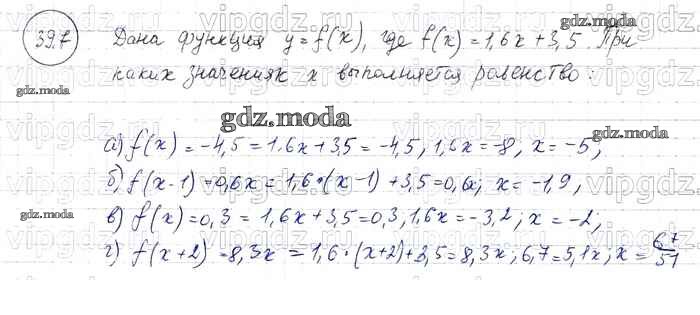 gdz.moda
39.7 Дана функция y = f(x), где f(x) = 1,6x + 3,5. При
каких значениях x выполняется равенство:
gdz.moda
gdz.moda
gdz.moda
а) f(x) = -4,5 = 1,6x + 3,5 = -4,5, 1,6x = -8; x = -5;
б) f(x-1) = 0,6x = 1,6·(x-1) + 3,5 = 0,6x; x = -1,9;
gdz.moda
в) f(x) = 0,3 = 1,6x + 3,5 = 0,3, 1,6x = -3,2; x = -2;
г) f(x+2) = 8,3x = 1,6·(x+2) + 3,5 = 8,3x; 6,7 = 5,1x; x = 67/51
vipgdz.ru vipgdz.ru vipgdz.ru vipgdz.ru